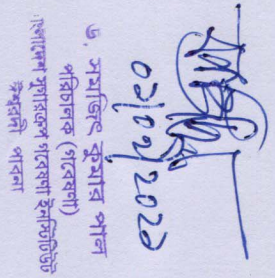 ০১/০২/2023
ড. সমজিৎ কুমার পাল
পরিচালক (গবেষণা)
বাংলাদেশ সুগারক্রপ গবেষণা ইনস্টিটিউট
ঈশ্বরদী পাবনা